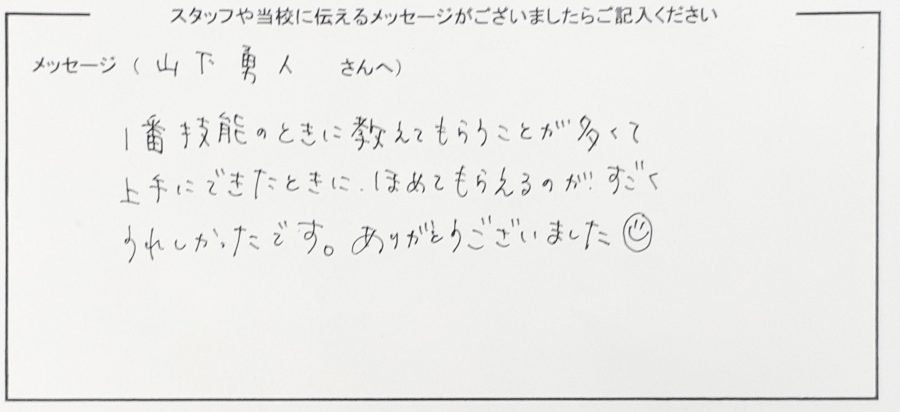 スタッフや当校に伝えるメッセージがございましたらご記入ください
メッセージ（山下勇人 さんへ）
1番技能のときに教えてもらうことが多くて
上手にできたときに、ほめてもらえるのが、すごく
うれしかったです。ありがとうございました☺